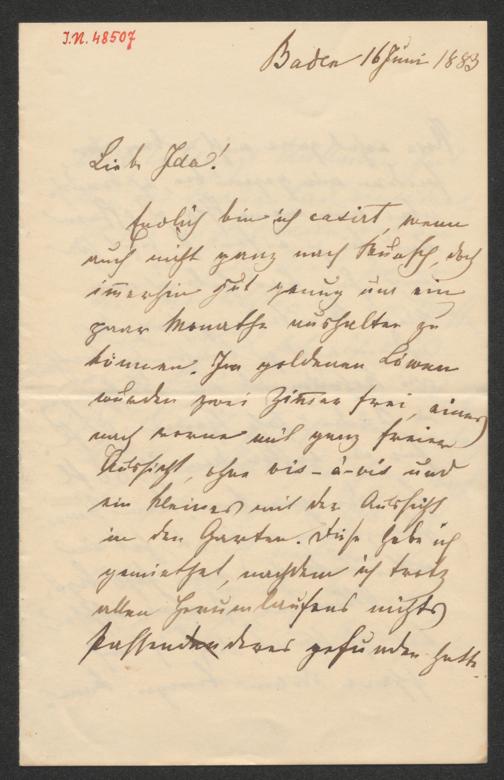 I.N. 48507
Baden 16 Juni 1883
Liebe Ida!
Endlich bin ich casirt, wenn
auch nicht ganz nach Wunsch, doch
im̅erhin gut genug um ein
paar Monathe aushalten zu
können. Im goldenen Löwen
wurden zwei Zim̅er frei, eines
nach vorne mit ganz freier
Aussicht, ohne vis-à-vis und
ein kleines mit der Aussicht
in den Garten. Diese habe ich
gemiethet, nachdem ich trotz
allen Herumlaufens nichts
Passenderes gefunden hatte.